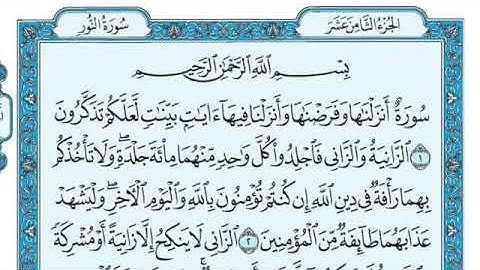 سُورَةُ النُّورِ
الجُزْءُ الثَّامِنَ عَشَرَ
بِسْمِ اللَّهِ الرَّحْمَٰنِ الرَّحِيمِ
سُورَةٌ أَنزَلْنَٰهَا وَفَرَضْنَٰهَا وَأَنزَلْنَا فِيهَآ ءَايَٰتٍۭ بَيِّنَٰتٍ لَّعَلَّكُمْ تَذَكَّرُونَ
١ ٱلزَّانِيَةُ وَٱلزَّانِى فَٱجْلِدُوا۟ كُلَّ وَٰحِدٍ مِّنْهُمَا مِا۟ئَةَ جَلْدَةٍ ۖ وَلَا تَأْخُذْكُم
بِهِمَا رَأْفَةٌ فِى دِينِ ٱللَّهِ إِن كُنتُمْ تُؤْمِنُونَ بِٱللَّهِ وَٱلْيَوْمِ ٱلْءَاخِرِ ۖ وَلْيَشْهَدْ
عَذَابَهُمَا طَآئِفَةٌ مِّنَ ٱلْمُؤْمِنِينَ ٢ ٱلزَّانِى لَا يَنكِحُ إِلَّا زَانِيَةً أَوْ مُشْرِكَةً